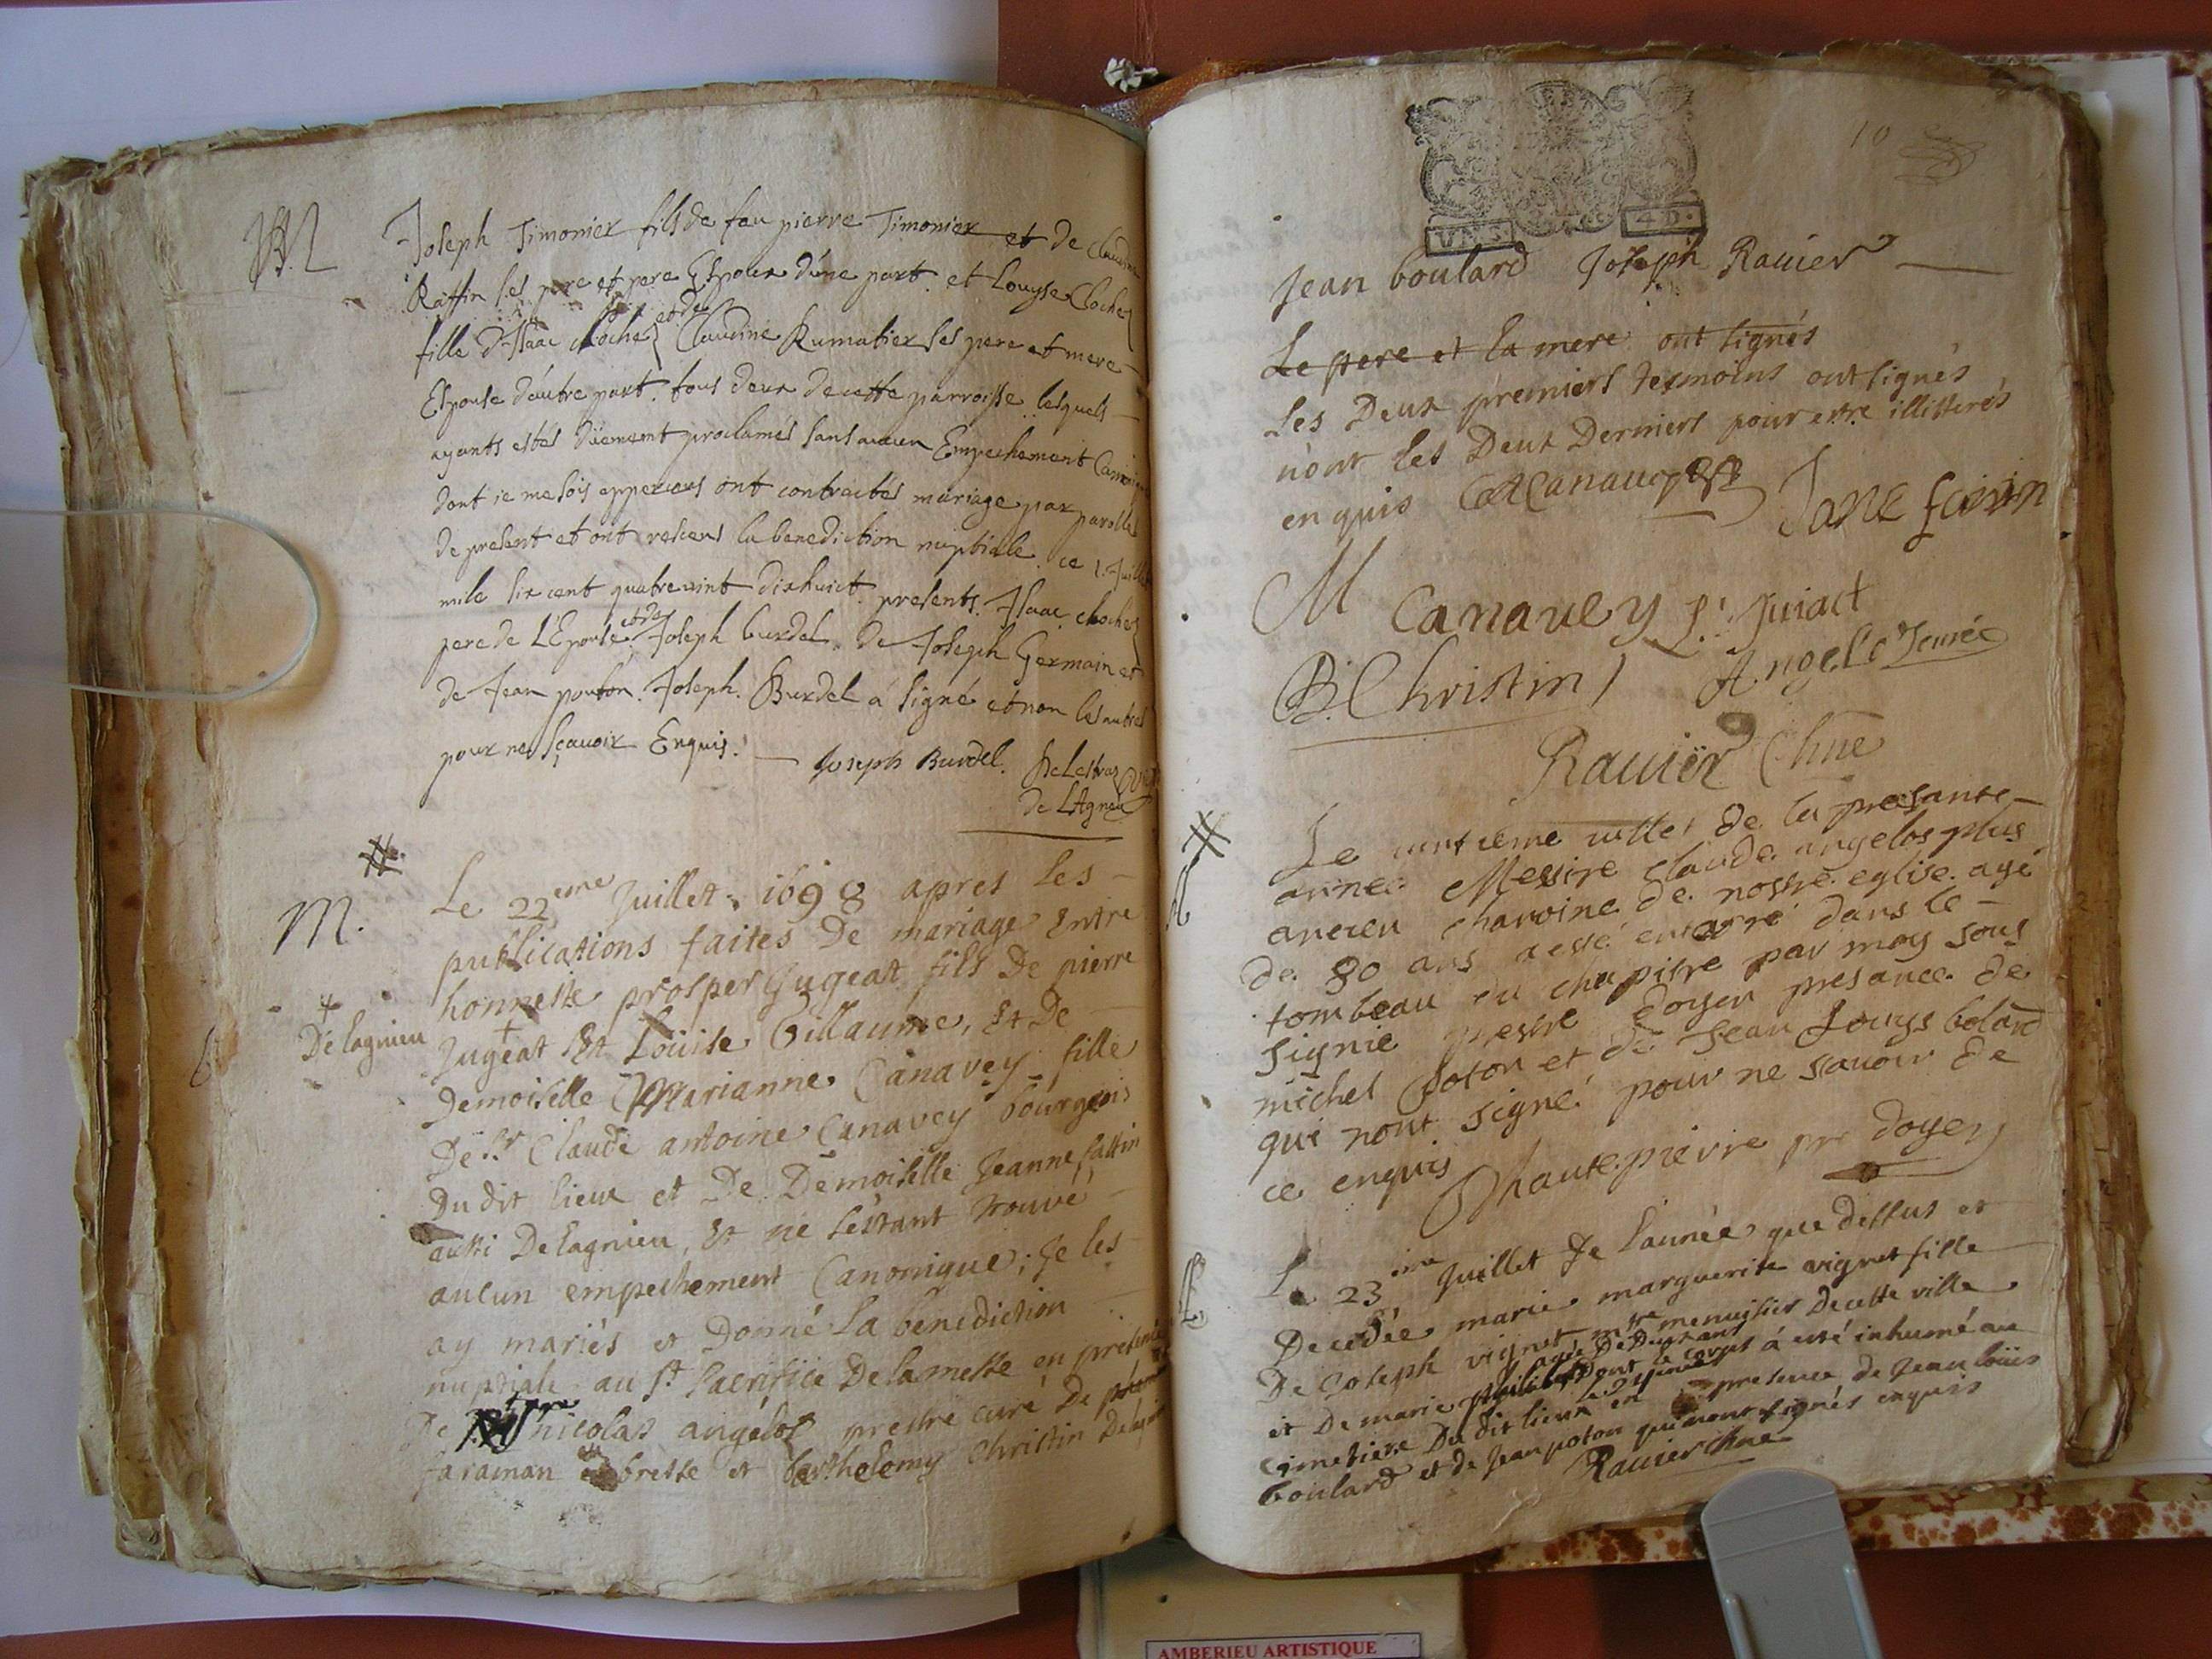 M
Joseph Timonier fils de feu pierre Timonier et de Claudine
Raffin ses pere et mere Espoux d'une part. et Louyse Cloche
fille d'Isaac cloche et de Claudine Rumatier ses pere et mere
Espouse d'autre part. tous deux de cette parroisse lesquels
ayants estés düement proclamés sans aucun Empechement
dont je me sois apperceus ont contractés mariage par parolles
de present et ont resceus la benediction nuptiale. ce 1. Juillet
mile six cent quatrevint dixhuict. presents. Isaac cloche
pere de L'Epouse et de Joseph burdel. de Joseph Germain et
de Jean pouton. Joseph. Burdel á signé et non les autres
pour ne sçauoir Enquis. Joseph Burdel.
de LAgneu
#
M.
Le 22eme Juillet 1698 apres les
publications faites De mariage Entre
honneste prosper Jugeat fils De pierre
+
De lagnieu
Jugeat + Et Loüise Gillaume, Et De
Demoiselle Marianne Canavey fille
De Sr Claude antoine Canavey bourgeois
Du dit lieux et De Demoiselle Jeanne
aussi De lagnieu, Et ne s'estant trouvé
aucun empechement Canonique; Je les
ay mariés et Donné La benediction
nuptiale au St. Sacrifice De la messe en présence
De nicolas angelot prestre curé De
faraman bresse et barthelemy Christin De lagnieu
10
Jean boulard Joseph Rauier
Le pere et la mere ont signés
Les Deux premiers tesmoins ont signés
n'ont les Deux Derniers pour estre illitterés
enquis
M Canauey Juiact
B. Christin Angelo
Rauier Chne
#
Le juillet de la presante
annee Messire claude angelos plus
ancien chanoine de nostre eglise agé
de 80 ans a esté enterré dans le
tombeau du chapitre par moy sous
signie prestre doyen presance de
michel poton et de Jean Louys bolard
qui nont signé pour ne sauoir de
ce enquis hautepierre pre doyen
Le 23eme Juillet De l'année que dessus et
Decedée marie marguerite vignet fille
De Joseph vignet mtre menuisier De cette ville
et De marie philibert agée De Deux ans Dont le corps á esté inhumé au
cimetiere Du dit lieux en presence de Jean loüis
boulard et de Jean poton qui n'ont signés enquis
Rauier chne
AMBERIEU ARTISTIQUE